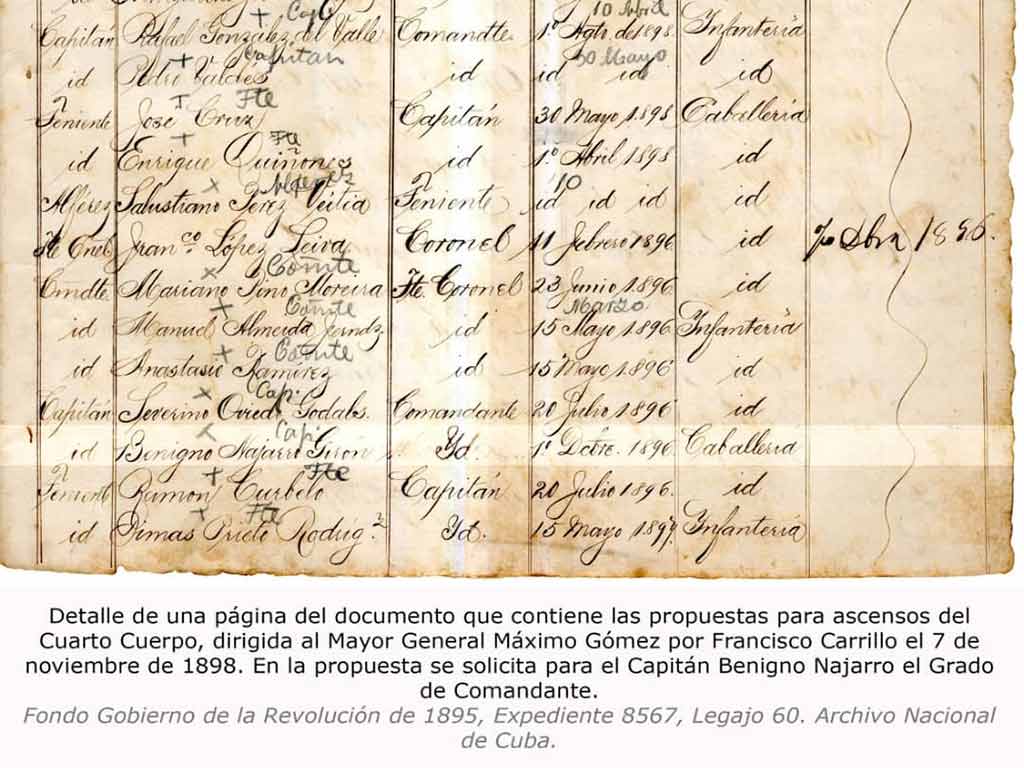 10 Abril
+ Cap
Capitán Rafael González del Valle Comandte. 1º Agto. de 1898. Infantería
+ Capitán 30 Mayo
id Pedro Valdés id id id id
+ Tte
Teniente José Cruz Capitán 30 Mayo 1898 Caballería
+ Tte
id Enrique Quiñones id 1º Abril 1898 id
x Alférez 10
Alférez Salustiano Pérez Teniente id id id id
Tte Cnel Franco López Leiva Coronel 11 Febrero 1896 id 1896.
x Comte
Cmdte. Mariano Pino Moreira Tte. Coronel 23 Junio 1896 id
+ Comte Marzo
id Manuel Almeida id 15 Mayo 1896 Infantería
+ Comte
id Anastasio Ramírez id 15 Mayo 1896 id
x Cap.
Capitán Severino Oviedo Comandante 20 Julio 1896 id
x Cap
id Benigno Najarro Girón Yd. 1º Dcbre. 1896 Caballería
+ Tte
Teniente Ramon Curbelo Capitán 20 Julio 1896. id
x Tte
id Dimas Prieto Rodrigz Yd. 15 Mayo 1897. Infantería
Detalle de una página del documento que contiene las propuestas para ascensos del
Cuarto Cuerpo, dirigida al Mayor General Máximo Gómez por Francisco Carrillo el 7 de
noviembre de 1898. En la propuesta se solicita para el Capitán Benigno Najarro el Grado
de Comandante.
Fondo Gobierno de la Revolución de 1895, Expediente 8567, Legajo 60. Archivo Nacional
de Cuba.